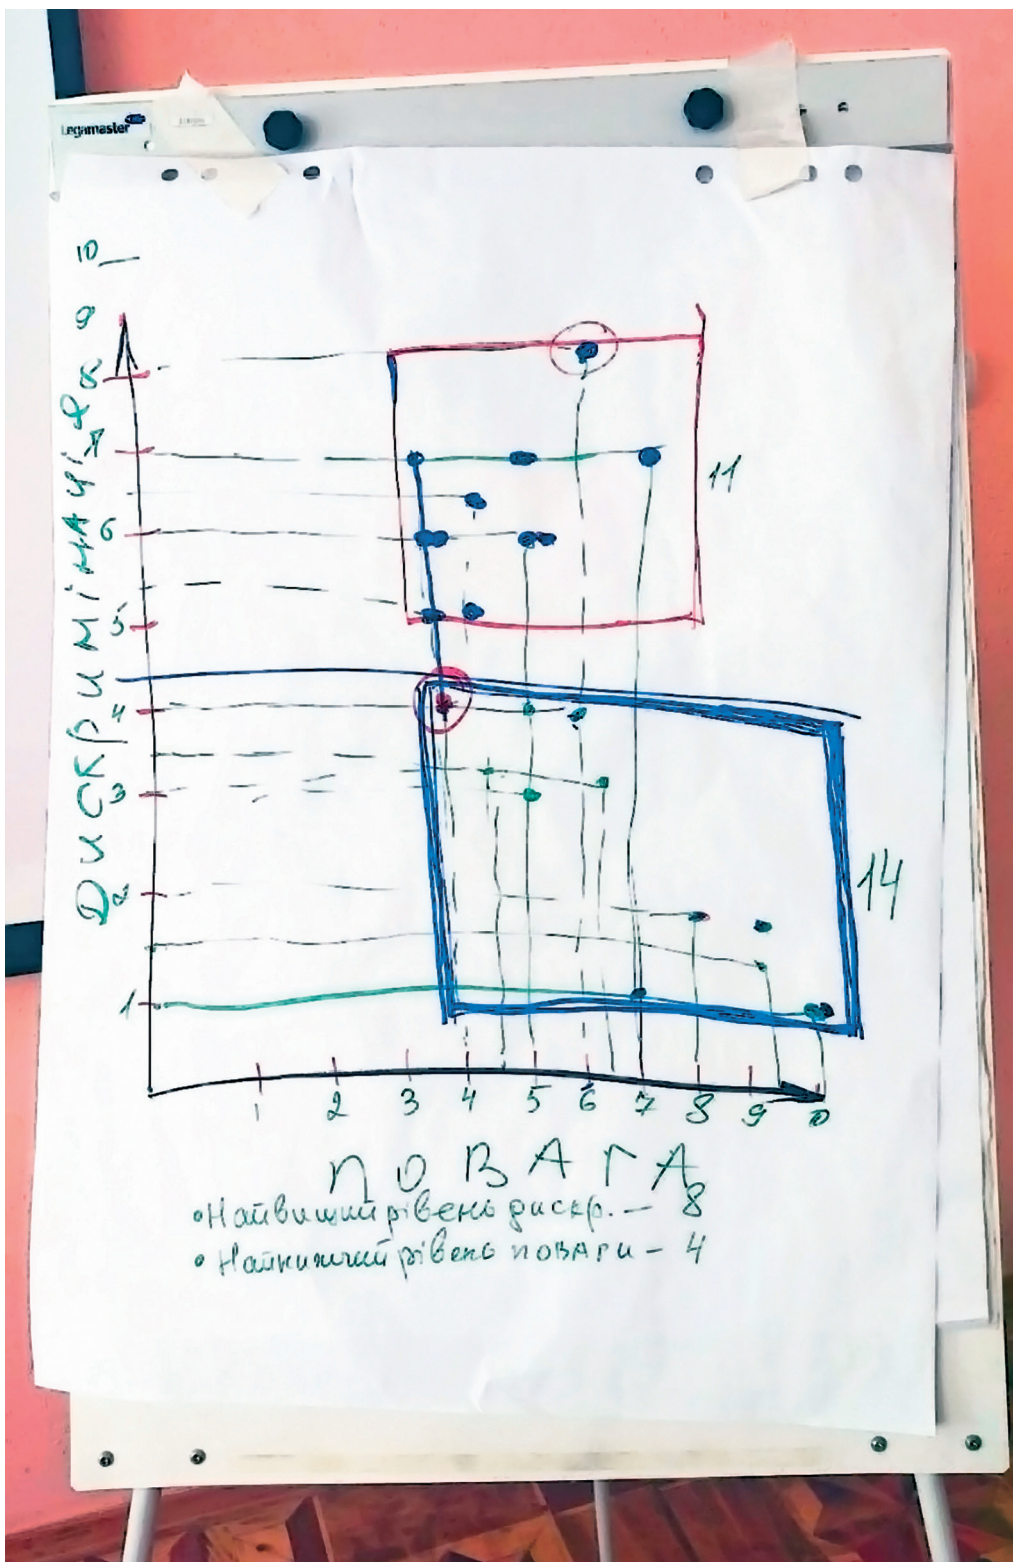 Legamaster
10
9
8
7
6
5
4
3
2
1
ДИСКРИМІНАЦІЯ
11
14
1 2 3 4 5 6 7 8 9 10
ПОВАГА
•Найвищий рівень дискр. – 8
•Найнижчий рівень поваги – 4